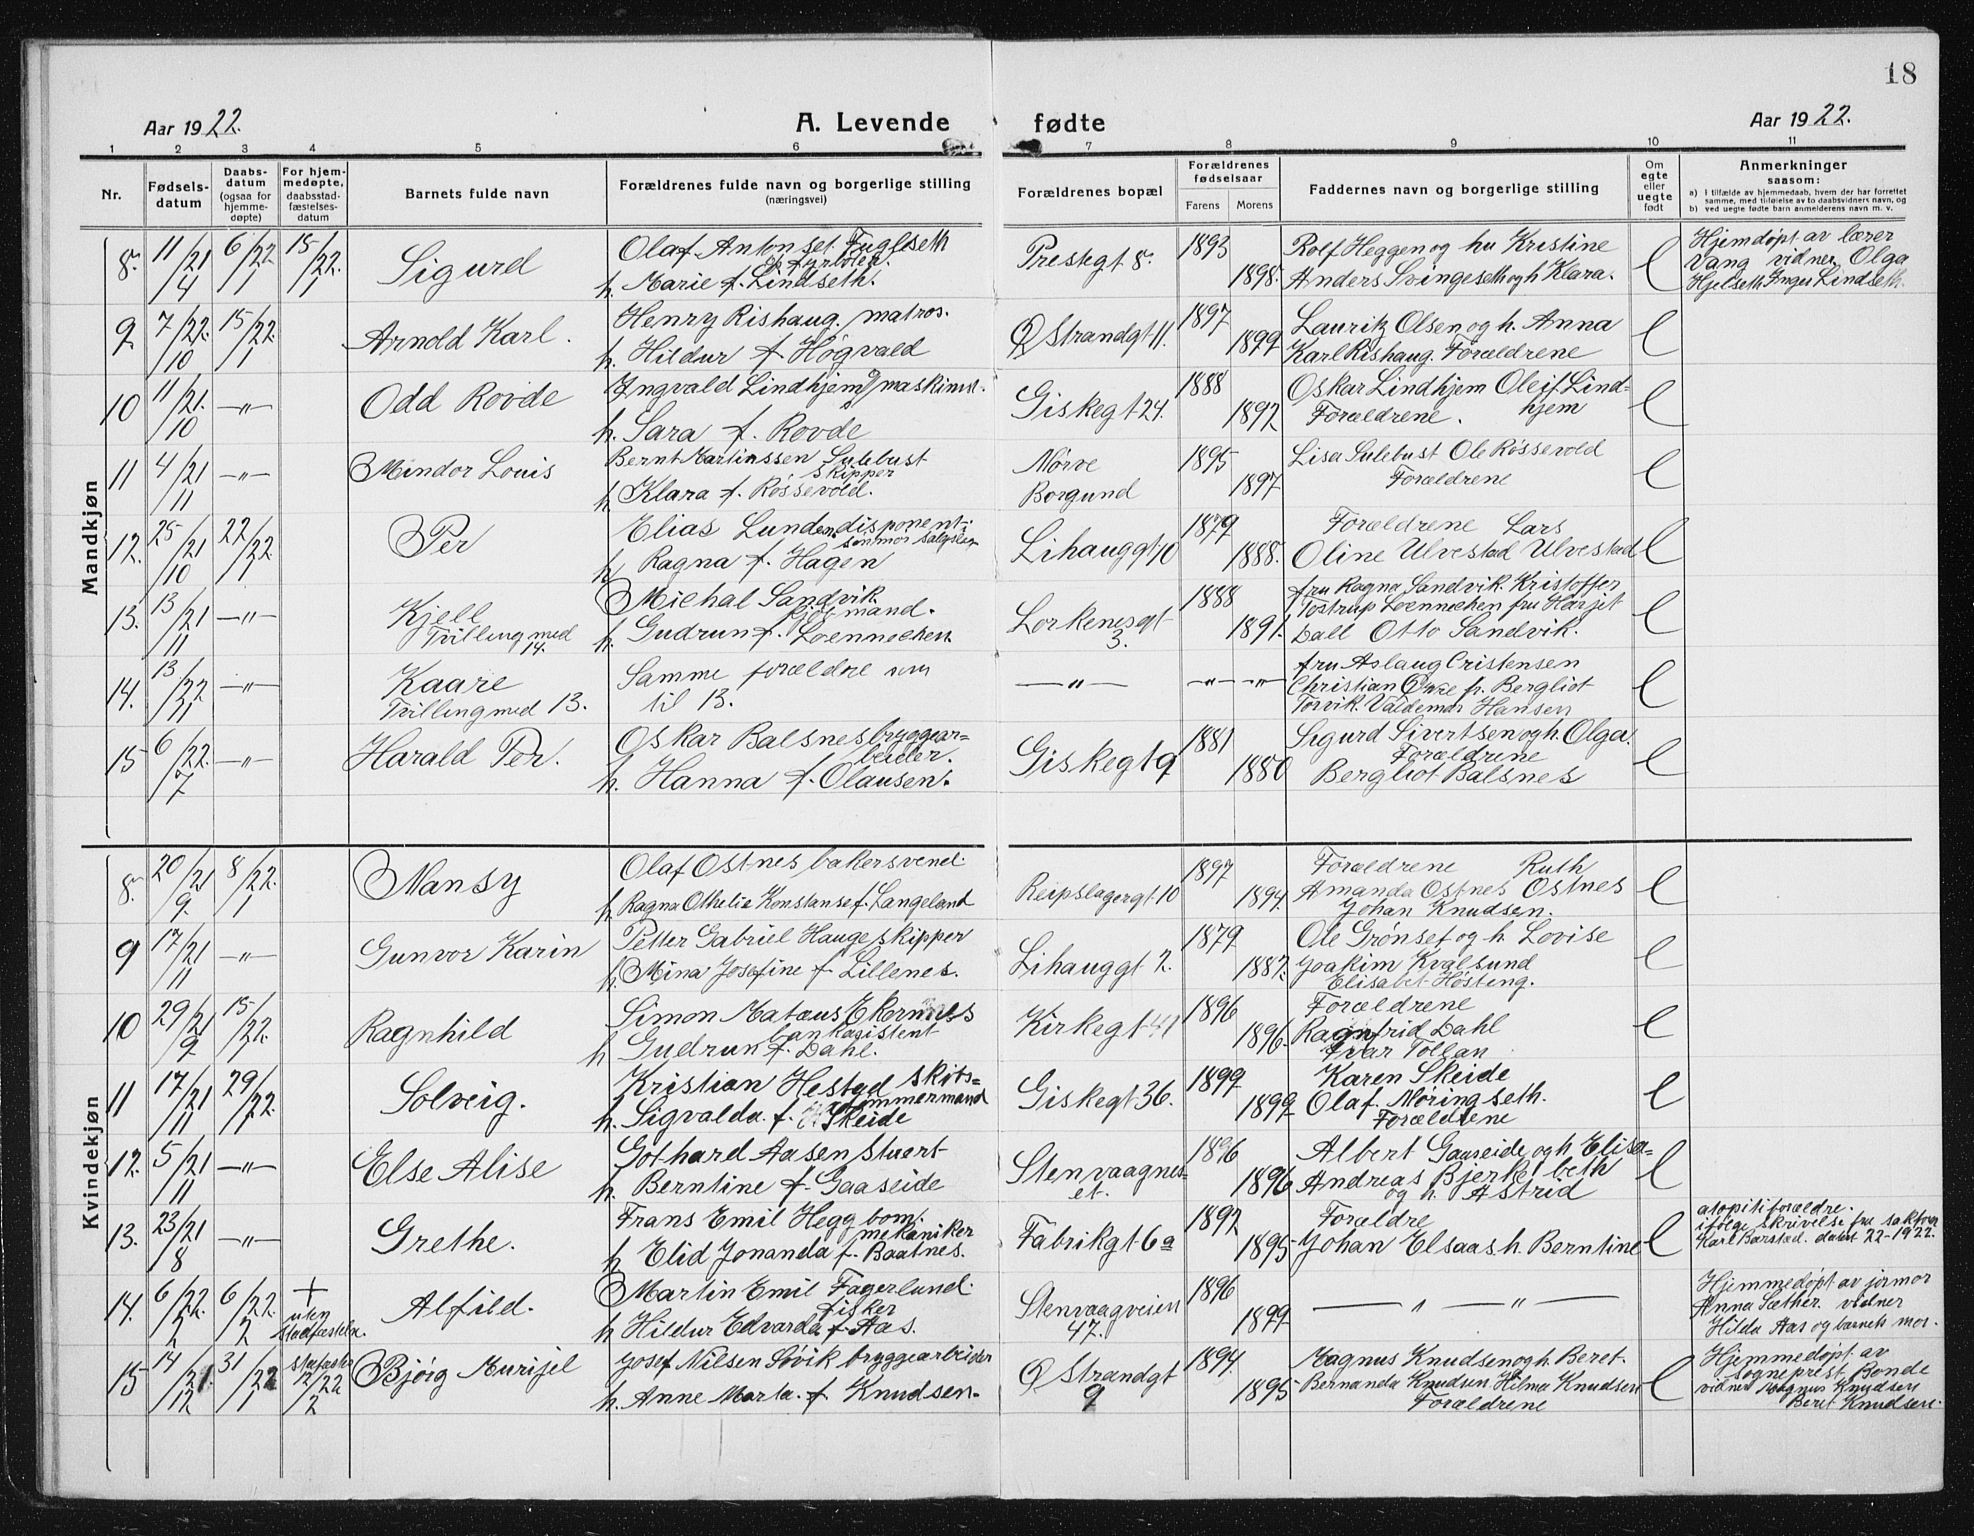 18
Aar 1922.
A. Levende fødte
Aar 1922.
1 2 3 4 5 6 7 8 9 10 11
Nr.
Fødsels-
datum
Daabs-
datum
(ogsaa for
hjemme-
døpte)
For hjem-
medøpte,
daabsstad-
fæstelses-
datum
Barnets fulde navn
Forældrenes fulde navn og borgerlige stilling
(næringsvei)
Forældrenes bopæl
Forældrenes
fødselsaar
Farens Morens
Faddernes navn og borgerlige stilling
Om
egte
eller
uegte
født
Anmerkninger
saasom:
a) I tilfælde av hjemmedaab, hvem der har forrettet
samme, med tilføielse av to daabsvidners navn m. v.
b) ved uegte fødte barn anmelderens navn m. v.
Mandkjøn
8. 11/21 /4 6/22 /1 15/22. /1
Sigurd
Olaf Antonset Fuglseth
fyrbøter.
h. Marie f. Lindseth.
Prestegt 8.
1893
1898.
Rolf Heggen og hu Kristine
Anders Svingeseth og h Klara.
l
Hjemdøpt av lærer
Vang vidner Olga
Hjelseth Inger Lindseth.
9. 7/22. /10 15/22. /1
Arnold Karl.
Henry Rishaug. matros.
h. Hildur f. Høgvald
Ø Strandgt 11.
1897
1899
Lauritz Olsen og h. Anna
Karl Rishaug. Forældrene
l
10 11/21. /10 —"—
Odd Rovde
Yngvald Lindhjem maskinist.
h. Sara f. Rovde
Giskegt 24.
1888
1892
Oskar Lindhjem Oleif Lind-
Forældrene. hjem
l
11 4/21 /11 —"—
Mindor Louis
Bernt Martinssen Sulebust
skipper
h Klara f. Røssevold.
Nørve
Borgund
1895
1897
Lisa Sulebust Ole Røssevold
Forældrene
l
12. 25/21 /10 22/22 /1
Per
Elias Lunden disponent.
h Ragna f. Hagen
Lihauggt 10
1879
1888.
Forældrene Lars
Oline Ulvestad Ulvestad
l
13. 13/21 /11 —"—
Kjell
Tvilling med
14.
Michal Sandvik.
h. Gudrun f. Loennechen
Lorkenesgt
3.
1888
1891.
fru Ragna Sandvik. Kristoffer
Tostrup Loennechen fru Harjet
Dall Otto Sandvik.
l
14. 13/22 /11 —"—
Kaare
Tvilling med 13.
Samme forældre som
til 13.
—"—
—"— —"—
fru Aslaug Cristensen
Christian Owre fr. Bergliot
Torvik. Valdemar Hansen
l
15 6/22. /7 —"—
Harald Per.
Oskar Balsnes bryggear=
beider.
h. Hanna f. Olausen.
Giskegt 9
1881
1880
Sigurd Sivertsen og h. Olga.
Forældrene
Bergliot Balsnes
l
Kvindekjøn
8. 20/21 /9. 8/22. /1
Nansy
Olaf Ostnes bakersvend.
h. Ragna Othelie Konstanse f. Langeland
Reipslagergt 10
1897
1894.
Forældrene Ruth
Amanda Ostnes Ostnes
Johan Knudsen.
l
9 17/21 /11 —"—
Gunvor Karin
Petter Gabriel Hauge skipper
h. Mina Josefine f Lillenes.
Lihauggt 2.
1879
1887.
Ole Grønset og h Lovise
Joakim Kvalsund
Elisabet Høsteng.
l
10 29/21 /9 15/22. /1
Ragnhild
Simon Mataus Ekornnes
bankasistent
h Gudrun f. Dahl.
Kirkegt 41
1896
1896.
Forældrene
Ragnfrid Dahl
Ivar Tollan
l
11 17/21 /11 29/22. /1
Solveig.
Kristian Hestad skibs=
tømmermand
h. Sigvalda. f. Skeide
Giskegt 36.
1899
1899
Karen Skeide
Olaf. Møringseth.
Forældrene
l
12. 5/21 /11 —"—
Else Alise
Gothard Aasen Stuert
h. Berntine f. Gaaseide
Stenvaagnes-
et.
1896
1896
Albert Gaaseide og h Elisa=
Andreas Bjerke beth
og h. Astrid
l
13. 23/21 /8 —"—
Grethe.
Frans Emil Hegg bom.
mekaniker
h Elid Jonanda f. Baatnes.
Fabrikgt 6a
1892
1895
Forældre
Johan Elsaas h. Berntine
l
atopitiforældre.
ifølge skrivelse fra sakfører
Karl Barstad. datert 22-1922.
14. 6/22. /2 6/22. /2 + uten
stadfæstelse.
Alfild.
Martin Emil Fagerlund.
fisker
h Hildur Edvarda f. Aas.
Stenvaagveien
47.
1896
1899
— " — " —
l
Hjemmedøpt av jormor
Anna Sæther. vidner
Hilda Aas og barnets mor.
15 14/21. /12 31/22 /1 12/22 /2
Bjørg Murijel
Josef Nilsen Søvik bryggearbeider
h. Anne Marta. f. Knudsen.
Ø Strandgt
9
1894.
1895
Magnus Knudsen og h. Beret.
Bernanda Knudsen Hilma Knudsen
Forældrene
l
Hjemmedøpt av
sogneprest Bonde
vidner Magnus Knudsen
Beret Knudsen.